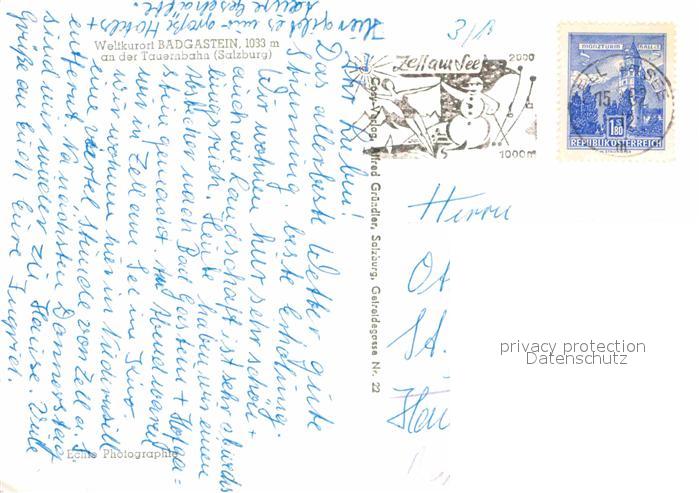 Weltkurort BADGASTEIN, 1033 m
an der Tauernbahn (Salzburg)
Ihr Lieben!
Das allerbeste Wetter, gute
Stimmung, beste Erholung.
Wir wohnen hier sehr schön +
auch die Landschaft ist sehr
Heute haben wir einen
Abstecher nach Bad Gastein + Hofga=
stein gemacht. Am Abend waren
wir in Zell am See im Kino.
wir wohnen hier in Niedernsill
eine viertel Stunde von Zell a. S.
entfernt. Na nächsten Donnerstag
sind wir wieder zu Hause. Viele
Grüße an Euch Eure Ingrid.
Hier gibt es nur große Hotels +
teure Geschäfte.
Echte Photographie
Cosy-Verlag Alfred Gründler, Salzburg, Getreidegasse Nr. 22
Zell am See
2000
1000m
MÜNZTURM HALL i.T.
S 1.80
REPUBLIK ÖSTERREICH
ZELL SEE
15.
62
Herrn
privacy protection
Datenschutz